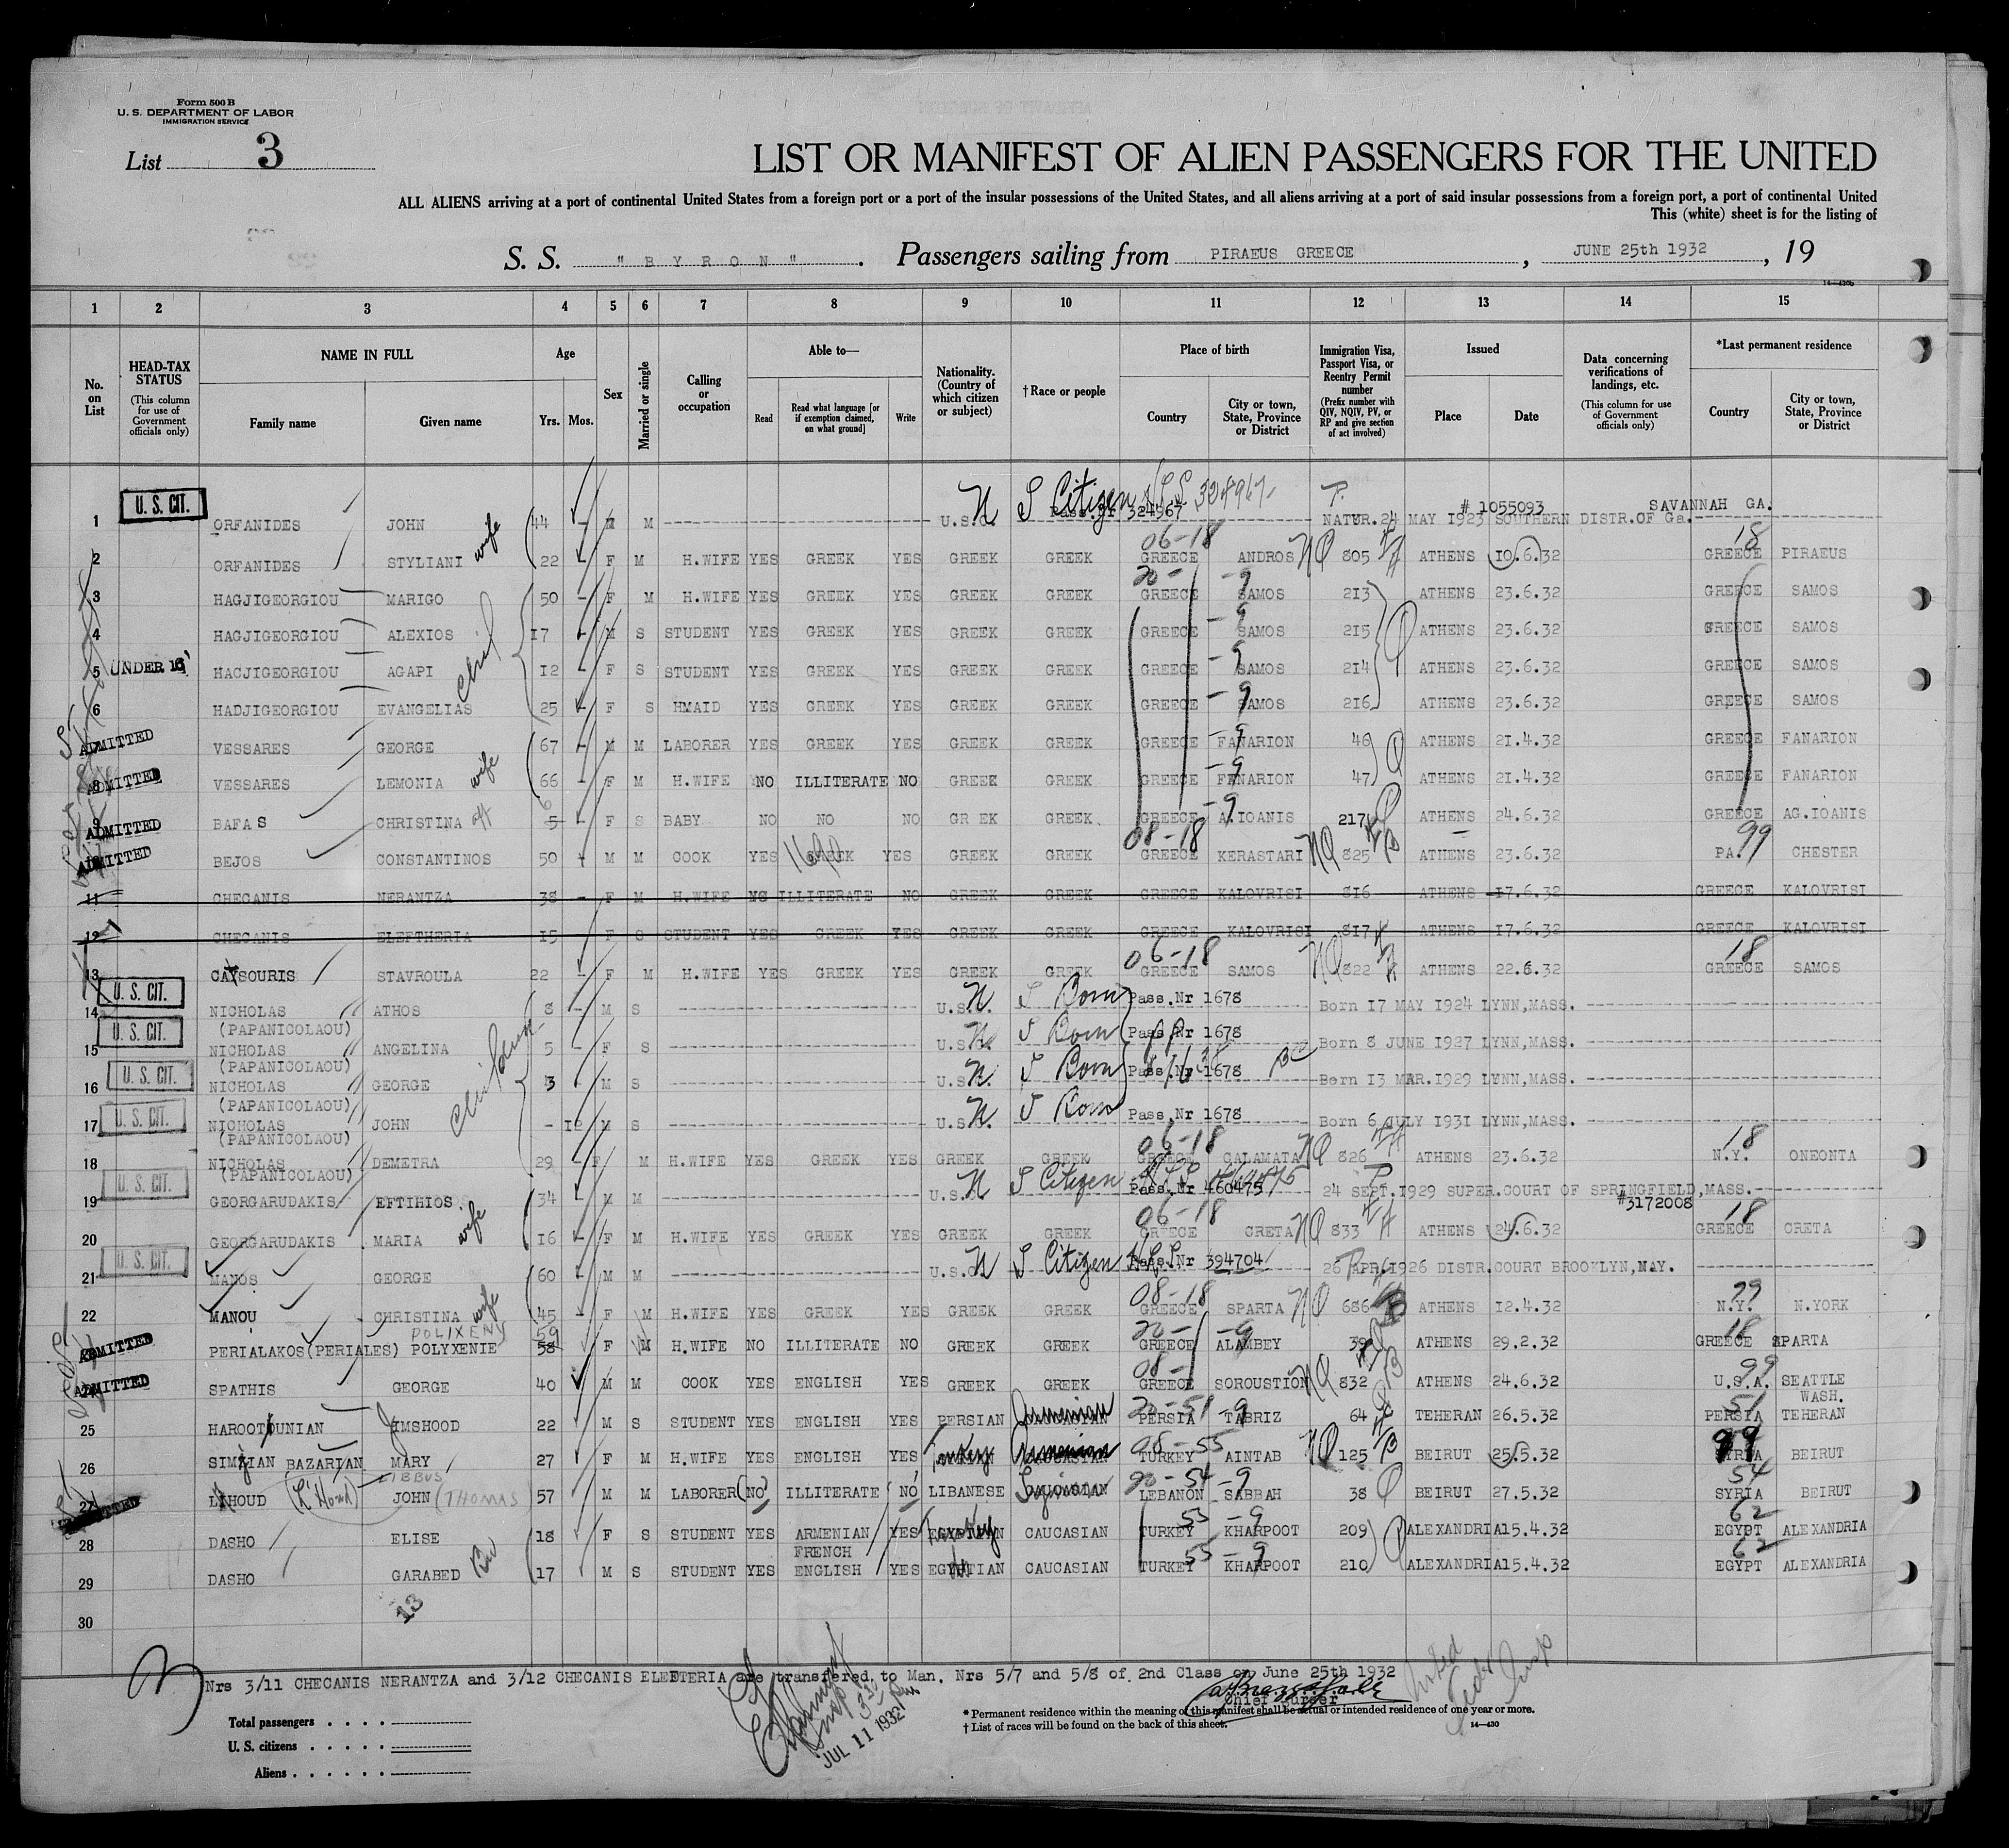 Form 500 B
U. S. DEPARTMENT OF LABOR
IMMIGRATION SERVICE
List 3
LIST OR MANIFEST OF ALIEN PASSENGERS FOR THE UNITED
ALL ALIENS arriving at a port of continental United States from a foreign port or a port of the insular possessions of the United States, and all aliens arriving at a port of said insular possessions from a foreign port, a port of continental United
This (white) sheet is for the listing of
S. S. "BYRON". Passengers sailing from PIRAEUS GREECE, JUNE 25th 1932, 19
14-430b
1 2 3 4 5 6 7 8 9 10 11 12 13 14 15
No. on List
HEAD-TAX STATUS (This column for use of Government officials only)
NAME IN FULL
Family name Given name
Age Yrs. Mos.
Sex
Married or single
Calling or occupation
Able to—
Read Read what language [or if exemption claimed, on what ground] Write
Nationality. (Country of which citizen or subject)
† Race or people
Place of birth
Country City or town, State, Province or District
Immigration Visa, Passport Visa, or Reentry Permit number (Prefix number with QIV, NQIV, PV, or RP and give section of act involved)
Issued
Place Date
Data concerning verifications of landings, etc. (This column for use of Government officials only)
*Last permanent residence
Country City or town, State, Province or District
U S Citizen 324967 # 1055093 SAVANNAH GA.
1 U. S. CIT. ORFANIDES JOHN 44 - M M U.S. Pass.Nr 324967 NATUR.24 MAY 1923 SOUTHERN DISTR.OF Ga.
06-18 18
2 ORFANIDES STYLIANI wife 22 - F M H.WIFE YES GREEK YES GREEK GREEK GREECE ANDROS NQ 805 ATHENS 10.6.32 GREECE PIRAEUS
3 HAGJIGEORGIOU MARIGO 50 - F M H.WIFE YES GREEK YES GREEK GREEK GREECE SAMOS 213 ATHENS 23.6.32 GREECE SAMOS
4 HAGJIGEORGIOU ALEXIOS 17 - M S STUDENT YES GREEK YES GREEK GREEK GREECE SAMOS 215 ATHENS 23.6.32 GREECE SAMOS
5 UNDER 16 HACJIGEORGIOU AGAPI 12 - F S STUDENT YES GREEK YES GREEK GREEK GREECE SAMOS 214 ATHENS 23.6.32 GREECE SAMOS
6 HADJIGEORGIOU EVANGELIAS 25 - F S HMAID YES GREEK YES GREEK GREEK GREECE SAMOS 216 ATHENS 23.6.32 GREECE SAMOS
ADMITTED VESSARES GEORGE 67 - M M LABORER YES GREEK YES GREEK GREEK GREECE FANARION 46 ATHENS 21.4.32 GREECE FANARION
8 ADMITTED VESSARES LEMONIA wife 66 - F M H.WIFE NO ILLITERATE NO GREEK GREEK GREECE FANARION 47 ATHENS 21.4.32 GREECE FANARION
9 ADMITTED BAFAS CHRISTINA 5 - F S BABY NO NO NO GR EK GREEK GREECE A.IOANIS 217 ATHENS 24.6.32 GREECE AG.IOANIS
08-18 99
ADMITTED BEJOS CONSTANTINOS 50 - M M COOK YES GREEK YES GREEK GREEK GREECE KERASTARI NQ 825 ATHENS 23.6.32 PA. CHESTER
11 CHECANIS NERANTZA 38 - F M H.WIFE NO ILLITERATE NO GREEK GREEK GREECE KALOVRISI 816 ATHENS 17.6.32 GREECE KALOVRISI
12 CHECANIS ELEFTHERIA 15 F S STUDENT YES GREEK YES GREEK GREEK GREECE KALOVRISI 817 ATHENS 17.6.32 GREECE KALOVRISI
06-18 18
13 CAYSOURIS STAVROULA 22 - F M H.WIFE YES GREEK YES GREEK GREEK GREECE SAMOS NQ 822 ATHENS 22.6.32 GREECE SAMOS
14 U. S. CIT. NICHOLAS ATHOS 8 - M S U.S. U S Born Pass.Nr 1678 Born 17 MAY 1924 LYNN,MASS.
(PAPANICOLAOU)
15 U. S. CIT. NICHOLAS ANGELINA 5 - F S U.S. U S Born Pass.Nr 1678 Born 8 JUNE 1927 LYNN,MASS.
(PAPANICOLAOU)
16 U. S. CIT. NICHOLAS GEORGE 3 - M S U.S. U S Born Pass.Nr 1678 Born 13 MAR.1929 LYNN,MASS.
(PAPANICOLAOU)
17 U. S. CIT. NICHOLAS JOHN - 12 M S U.S. U S Born Pass.Nr 1678 Born 6 JULY 1931 LYNN,MASS.
(PAPANICOLAOU)
06-18 18
18 NICHOLAS DEMETRA 29 - F M H.WIFE YES GREEK YES GREEK GREEK GREECE CALAMATA NQ 826 ATHENS 23.6.32 N.Y. ONEONTA
(PAPANICOLAOU)
19 U. S. CIT. GEORGARUDAKIS EFTIHIOS 34 - M M U.S. U S Citizen Pass.Nr 460475 24 SEPT.1929 SUPER.COURT OF SPRINGFIELD,MASS.
#3172008
06-18 18
20 GEORGARUDAKIS MARIA wife 16 - F M H.WIFE YES GREEK YES GREEK GREEK GREECE CRETA NQ 833 ATHENS 24.6.32 GREECE CRETA
21 U. S. CIT. MANOS GEORGE 60 - M M U.S. U S Citizen Pass.Nr 394704 26 APR.1926 DISTR.COURT BROOKLYN,NAY.
08-18 99
22 MANOU CHRISTINA wife 45 - F M H.WIFE YES GREEK YES GREEK GREEK GREECE SPARTA NQ 686 ATHENS 12.4.32 N.Y. N.YORK
POLIXENY 59 18
ADMITTED PERIALAKOS(PERIALES) POLYXENIE 58 F M H.WIFE NO ILLITERATE NO GREEK GREEK GREECE ALAMBEY 39 ATHENS 29.2.32 GREECE SPARTA
99
ADMITTED SPATHIS GEORGE 40 M M COOK YES ENGLISH YES GREEK GREEK GREECE SOROUSTION NQ 832 ATHENS 24.6.32 U.S.A. SEATTLE WASH.
20-51-9 51
25 HAROOTOUNIAN JIMSHOOD 22 M S STUDENT YES ENGLISH YES PERSIAN Armenian PERSIA TABRIZ 64 ATHENS TEHERAN 26.5.32 PERSIA TEHERAN
08-55 99
26 SIMZIAN BAZARIAN MARY 27 F M H.WIFE YES ENGLISH YES Turkey Armenian TURKEY AINTAB NQ 125 BEIRUT 25.5.32 SYRIA BEIRUT
54
27 LAHOUD (L'Houd) JOHN (THOMAS 57 M M LABORER (NO) ILLITERATE NO LIBANESE Syrian LEBANON SABBAH 38 BEIRUT 27.5.32 SYRIA BEIRUT
55-9 62
28 DASHO ELISE 18 F S STUDENT YES ARMENIAN YES EGYPTIAN CAUCASIAN TURKEY KHARPOOT 209 ALEXANDRIA 15.4.32 EGYPT ALEXANDRIA
FRENCH 55-9 62
29 DASHO GARABED 17 M S STUDENT YES ENGLISH YES EGYPTIAN CAUCASIAN TURKEY KHARPOOT 210 ALEXANDRIA 15.4.32 EGYPT ALEXANDRIA
13
30
Nrs 3/11 CHECANIS NERANTZA and 3/12 CHECANIS ELEFTERIA are transfered to Man. Nrs 5/7 and 5/8 of 2nd Class on June 25th 1932
Chief Purser
Total passengers
U. S. citizens
Aliens
JUL 11 1932
* Permanent residence within the meaning of this manifest shall be actual or intended residence of one year or more.
† List of races will be found on the back of this sheet.
14-430